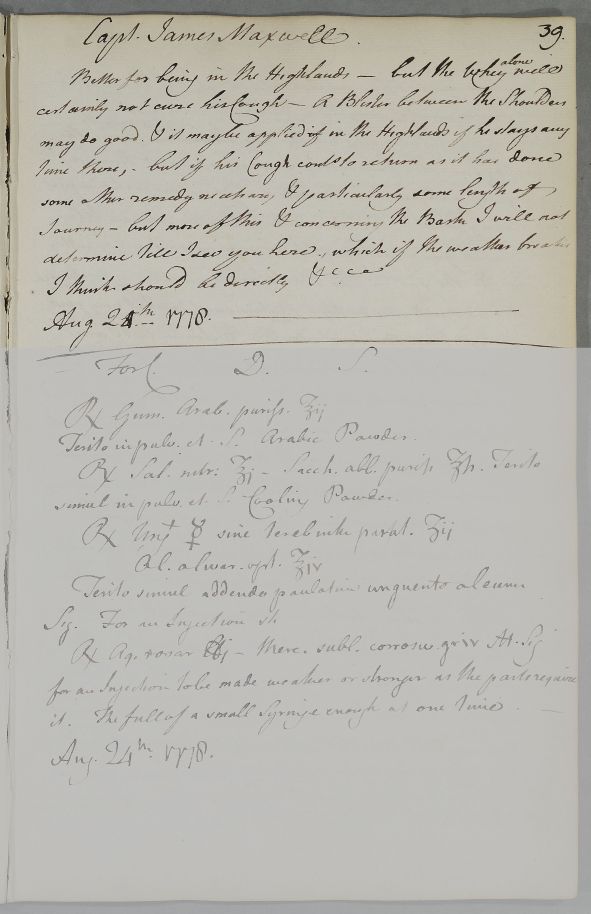 39.
Capt. James Maxwell.
Better for being in the Highlands – but the Whey alone will
certainly not cure his Cough – A Blister between the Shoulders
may do good. & it may be applied if in the Highlands if he stays any
time there, – but if his Cough comes to return as it has done
some other remedy necessary, & particularly some length of
Journey – but more of this & concerning the Bark I will not
determine till I see you here, which if the weather breaks
I think should be directly &c c a
Aug. 24th 1778.
For D. S.
℞ Gum. Arab. puriss. ʒij
Terito in pulv. et S. Arabic Powder.
℞ Sal. nitr: ʒj – Sacch. alb. puriss ʒſs. Terito
simul in pulv. et S. Cooling Powder.
℞ Ung.t ☿ sine terebinth. parat. ʒij
Ol. olivar. opt. ʒiv
Terito simul addendo paulatim unguento oleum
Sig. For an Injection
℞ Aq. rosar ℔j – Merc. subl. corrosiv. gr iv Sig
for an Injection to be made weaker or stronger as the parts require
it. The full of a small Syringe enough at one time. –
Aug. 24th 1778.